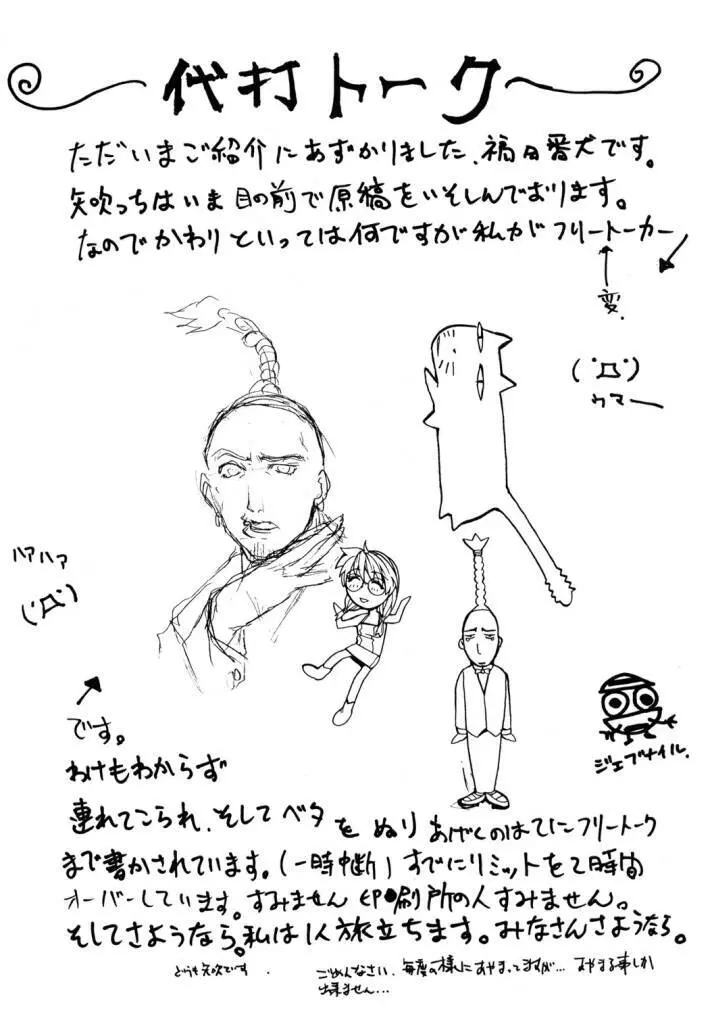 代打トーク
ただいまご紹介にあずかりました、福田番犬です。
矢吹っちはいま目の前で原稿をいそしんでおります。
なのでかわりといっては何ですが私がフリートーカー
変。
(゜Д゜)
ウマー
ハァハァ
(゜Д゜)
です。
わけもわからず
連れてこられ、そしてベタをぬりあげくのはてにフリートーク
まで書かされています。(一時中断)すでにリミットを2時間
オーバーしています。すみません印刷所の人すみません。
そしてさようなら。私は1人旅立ちます。みなさんさようなら。
ジェブナイル.
どうも矢吹です.
ごめんなさい.毎度の様にあやまってますが…あやまる事しか
出来ません...